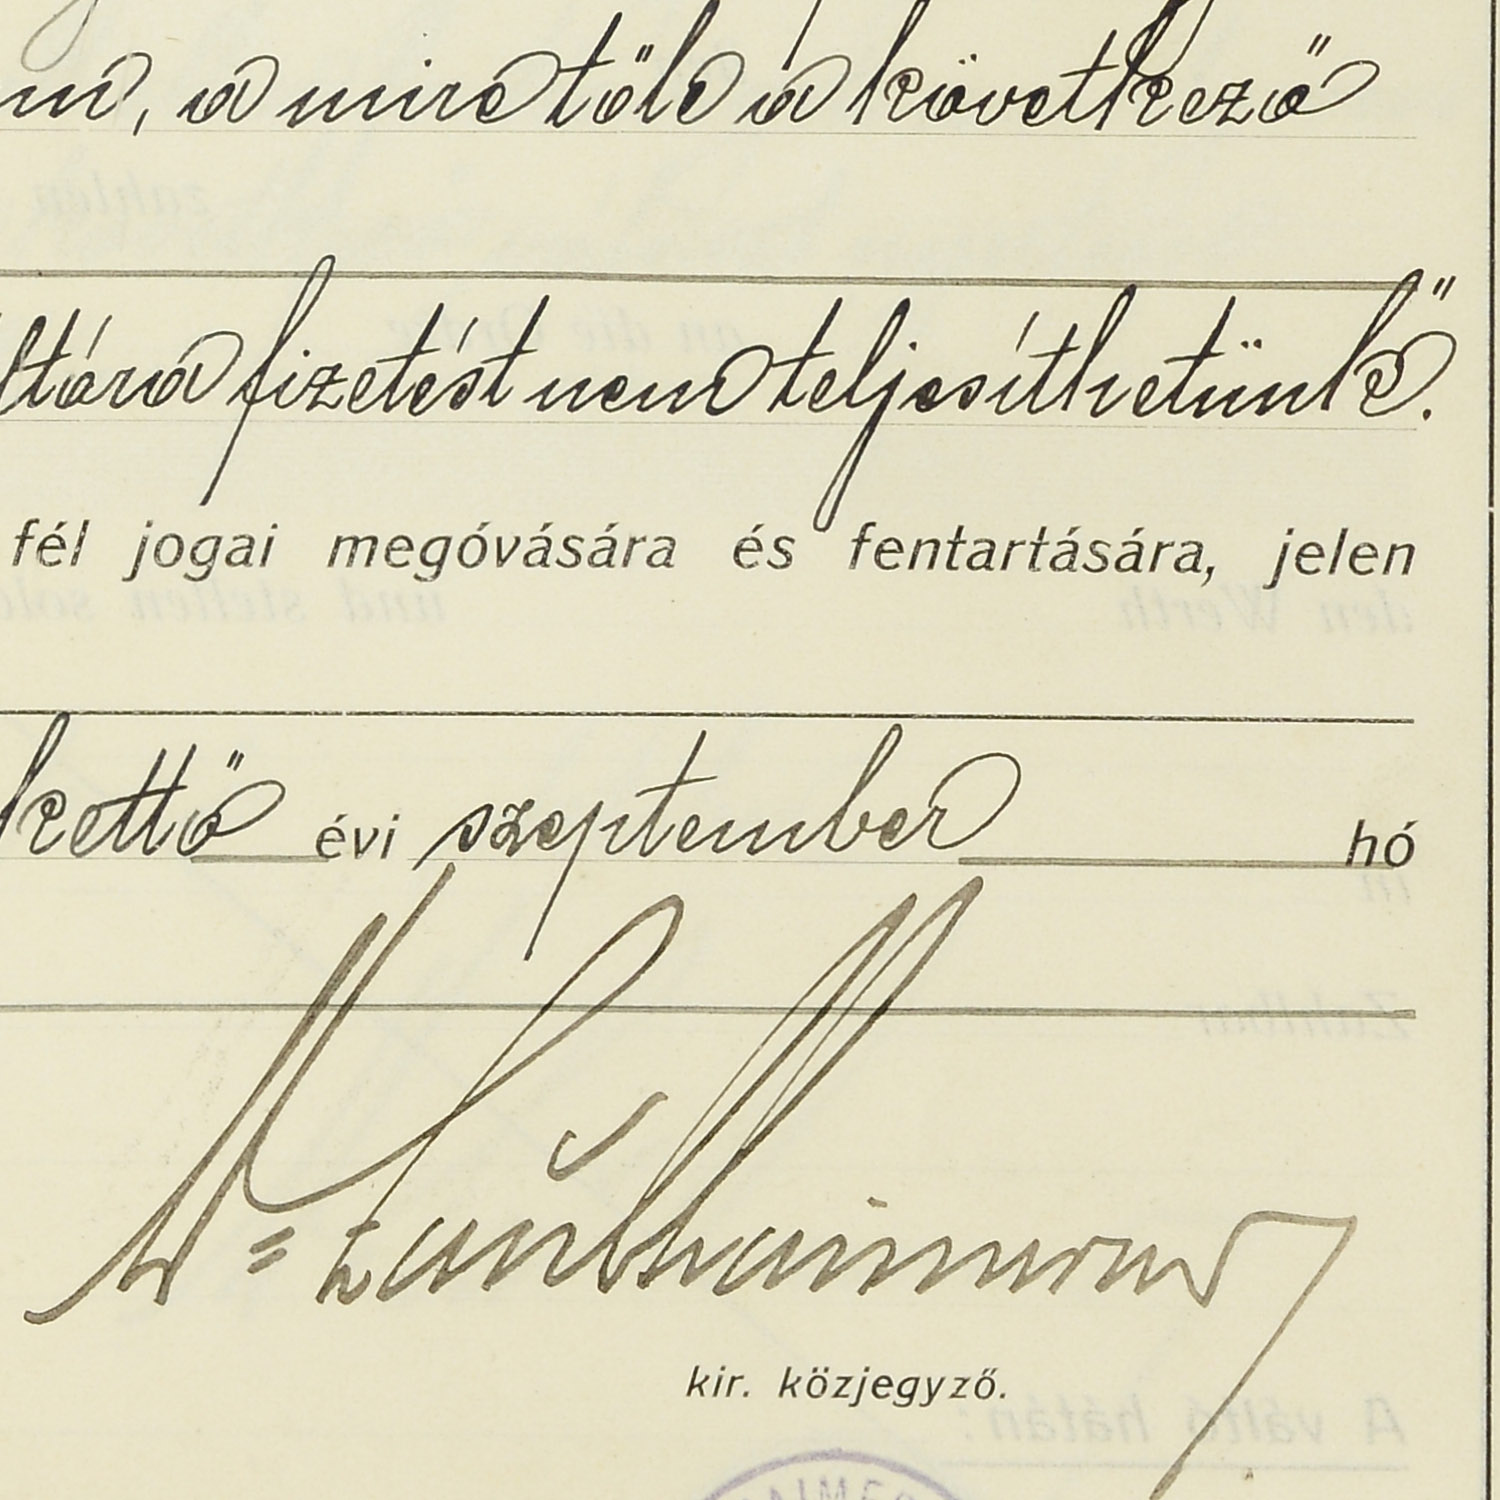 a mire tőle a következő
fizetést nem teljesíthetünk."
fél jogai megóvására és fentartására, jelen
kettő évi szeptember hó
kir. közjegyző.
A váltó hátán: